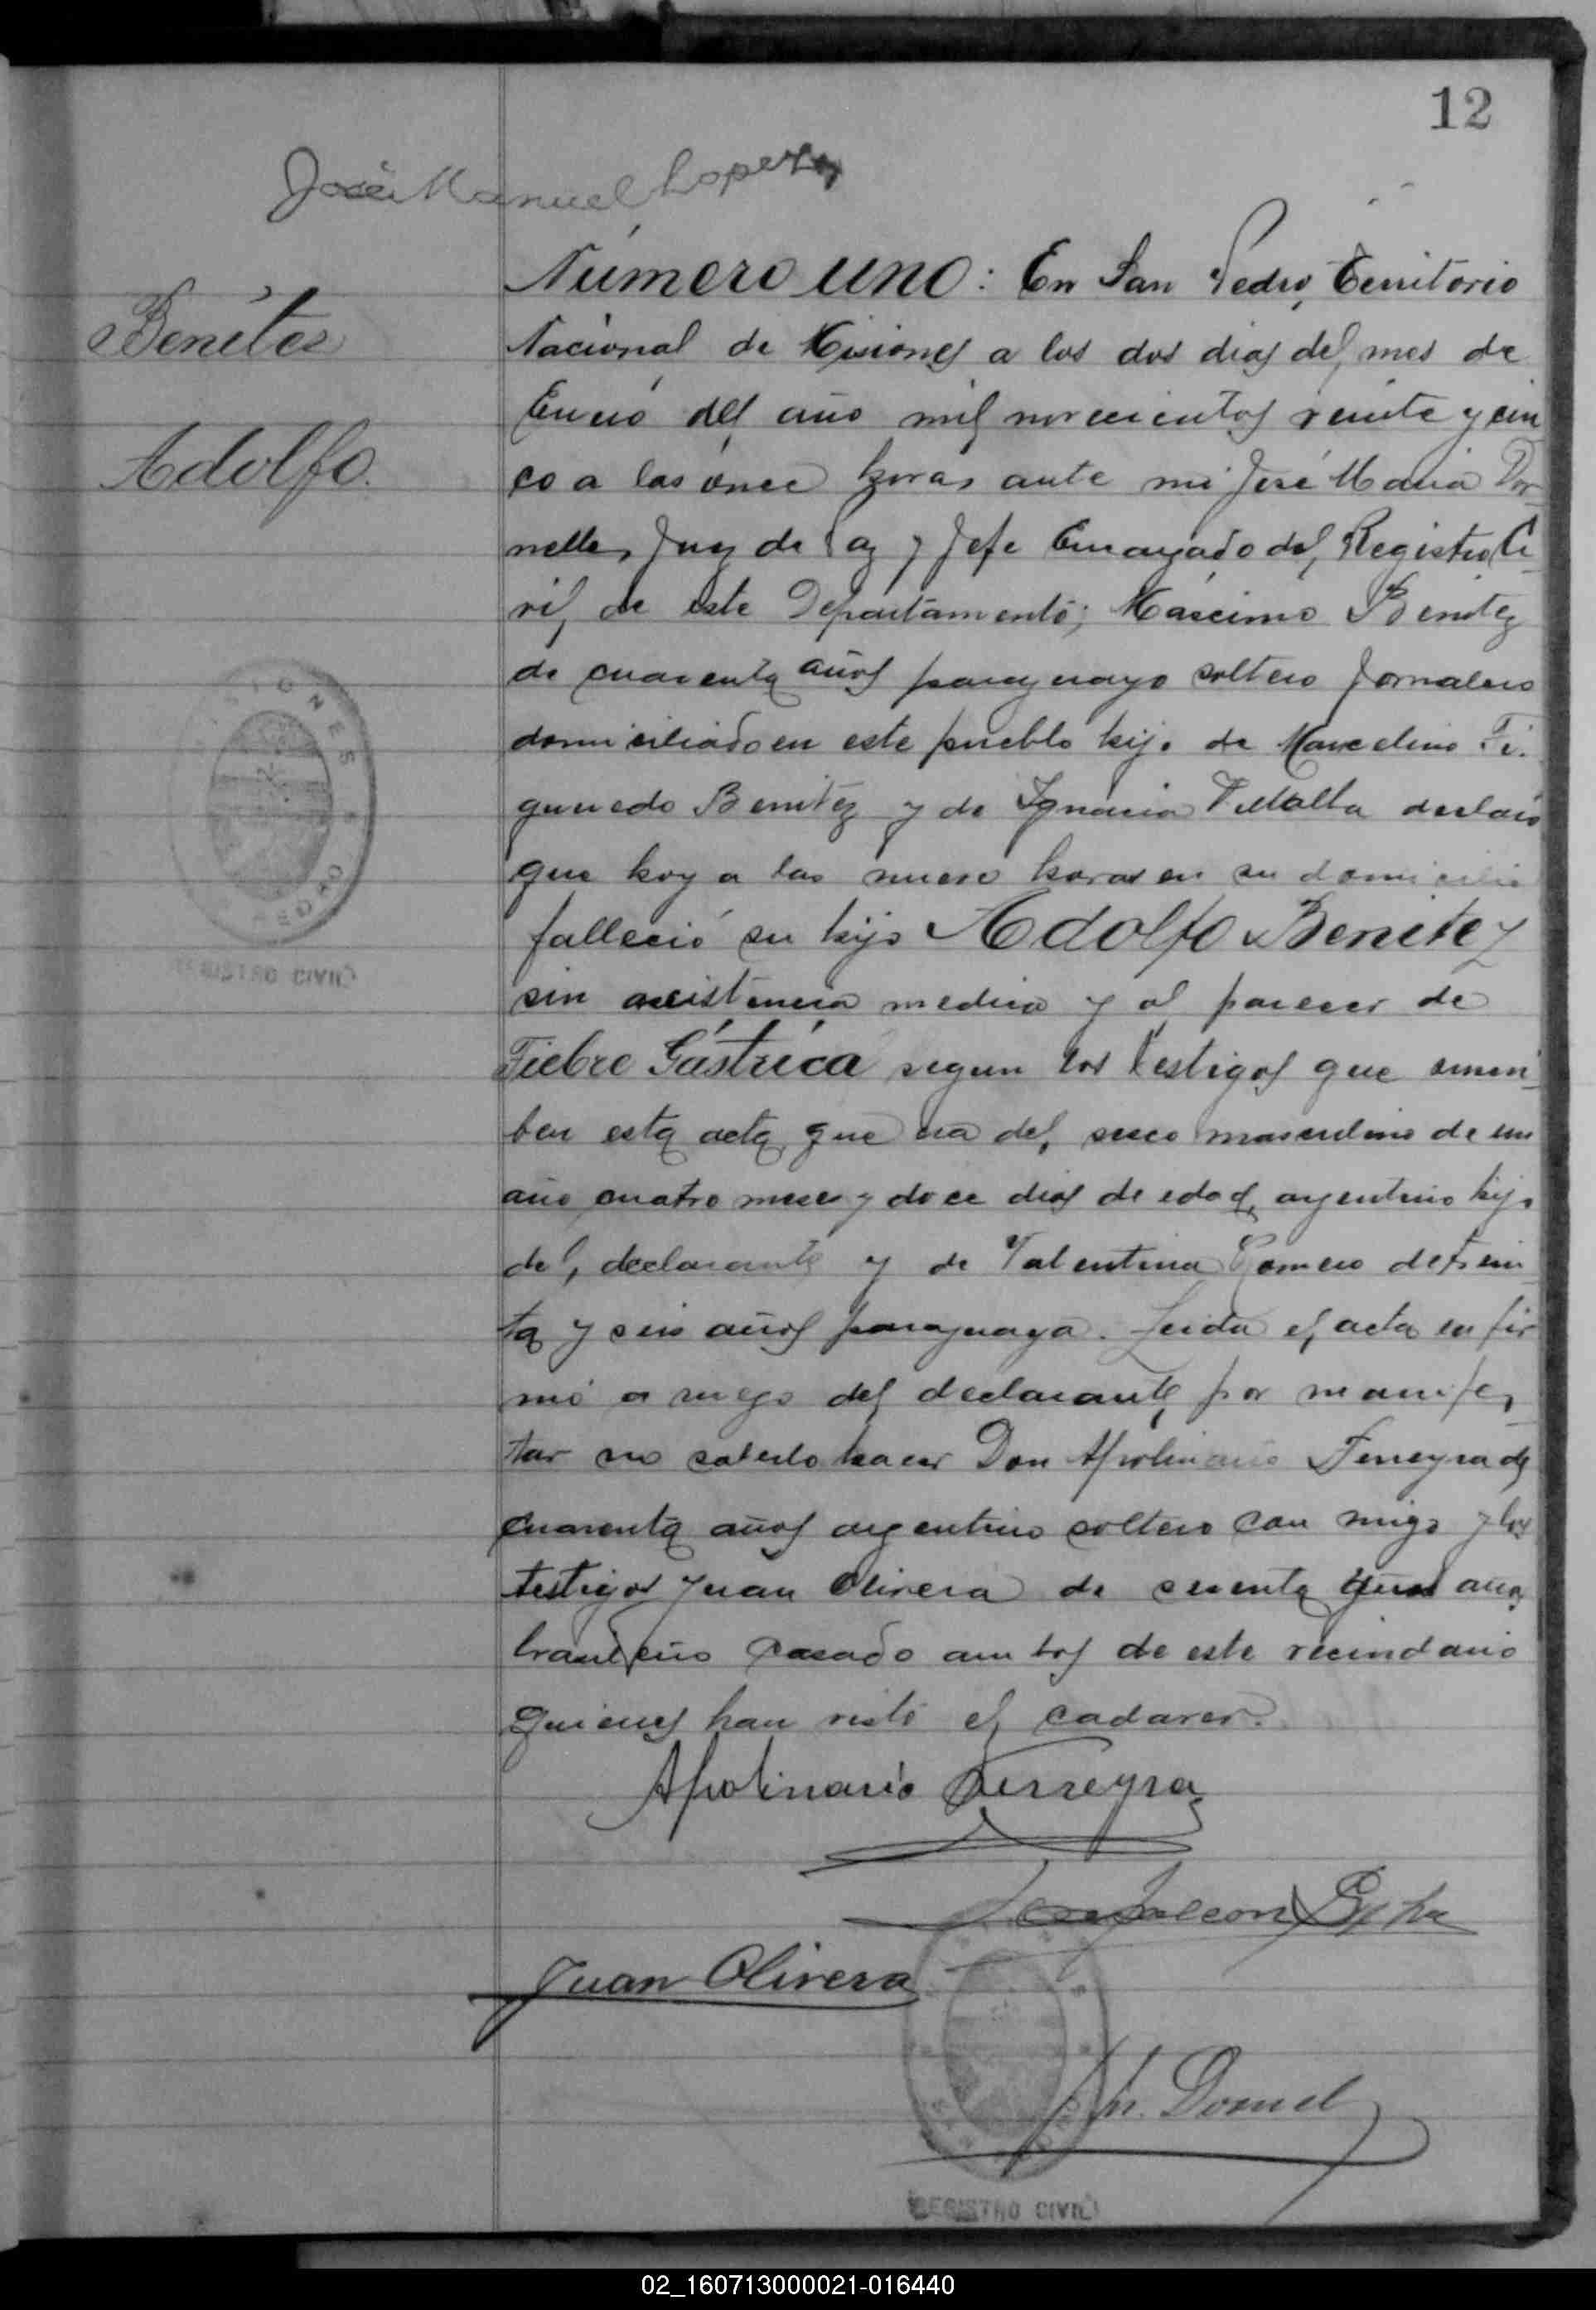 12
José Manuel Lopez
Benítez
Adolfo.
Número uno: En San Pedro, Territorio
Nacional de Misiones a los dos dias del mes de
Enero del año mil novecientos veinte y cin
co a las once horas ante mi José Maria Dor
nelles Juez de Paz y Jefe Encargado del Registro Ci
vil de este Departamento; Mascimo Benitez
de cuarenta años paraguayo soltero Jornalero
domiciliado en este pueblo hijo de Marcelino Fi
gueredo Benitez y de Ignacia Villalba declaró
que hoy a las nueve horas en su domicilio
falleció su hijo Adolfo Benitez
sin asistencia medica y al parecer de
Fiebre Gástrica segun los testigos que suscri
ben esta acta que era del secso masculino de un
año cuatro meses y doce dias de edad, argentino hijo
del declarante y de Valentina Romero de trein
ta y seis años paraguaya. Leida el acta la fir
mó a ruego del declarante por manifes
tar no saberlo hacer Don Apolinario Ferreyra de
cuarenta años argentino soltero con migo y los
testigos Juan Olivera de sesenta años
brasileño casado ambos de este vecindario
quienes han visto el cadaver.
Apolinario Ferreyra
Juan Olivera
M. Dornel
MISIONES
REGISTRO CIVIL
REGISTRO CIVIL
02_160713000021-016440